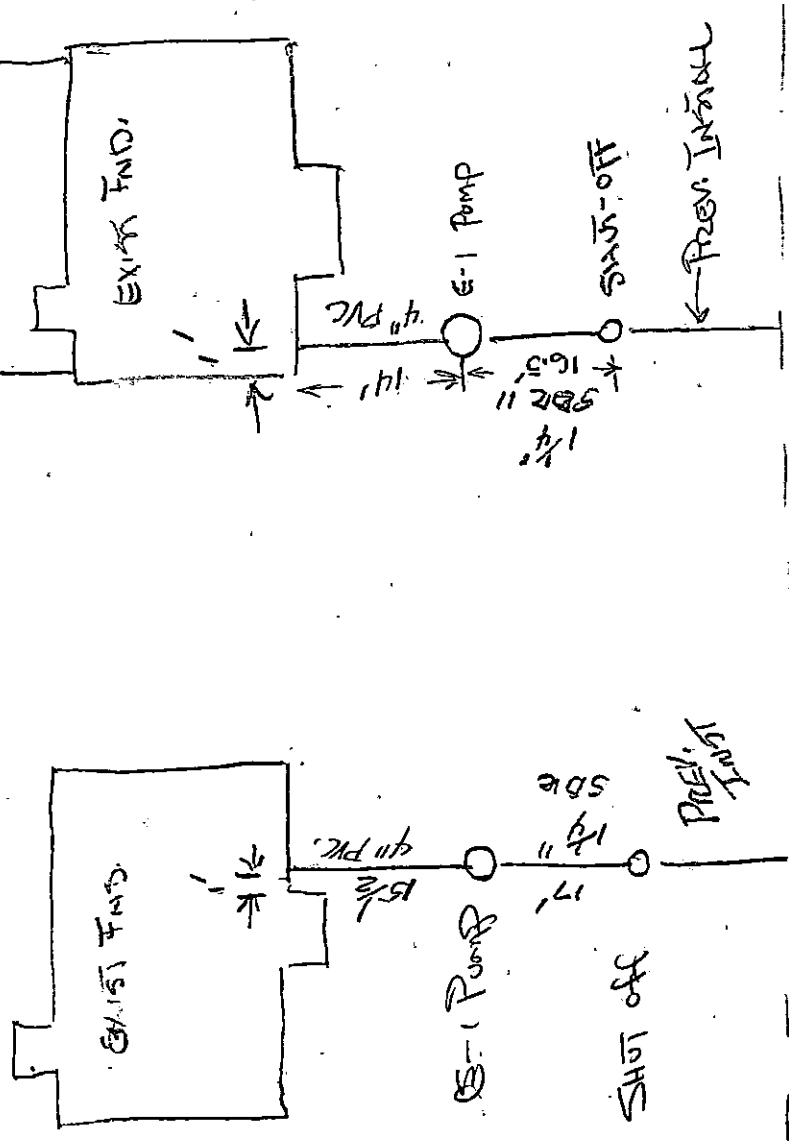 EXIST FND.
1'
4" PVC
14'
E-1 Pump
16.5'
SDR 11
1 1/4"
SHUT-OFF
PREV. INSTALL
EXIST FND.
1'
4" PVC.
15 1/2
E-1 Pump
17'
1 1/4"
SDR
SHUT OFF
PREV.
INST